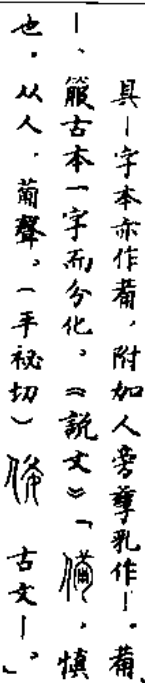 具｜字本亦作𤰇，附加人旁孳乳作｜。𤰇、
｜、箙古本一字而分化。《説文》「僃，慎
也。从人，𤰇聲。（平祕切）𠈍 古文｜。」